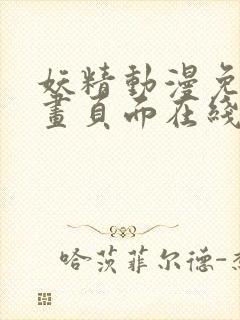 妖精動漫免
畫頁面在綫
哈茨菲尔德-杰